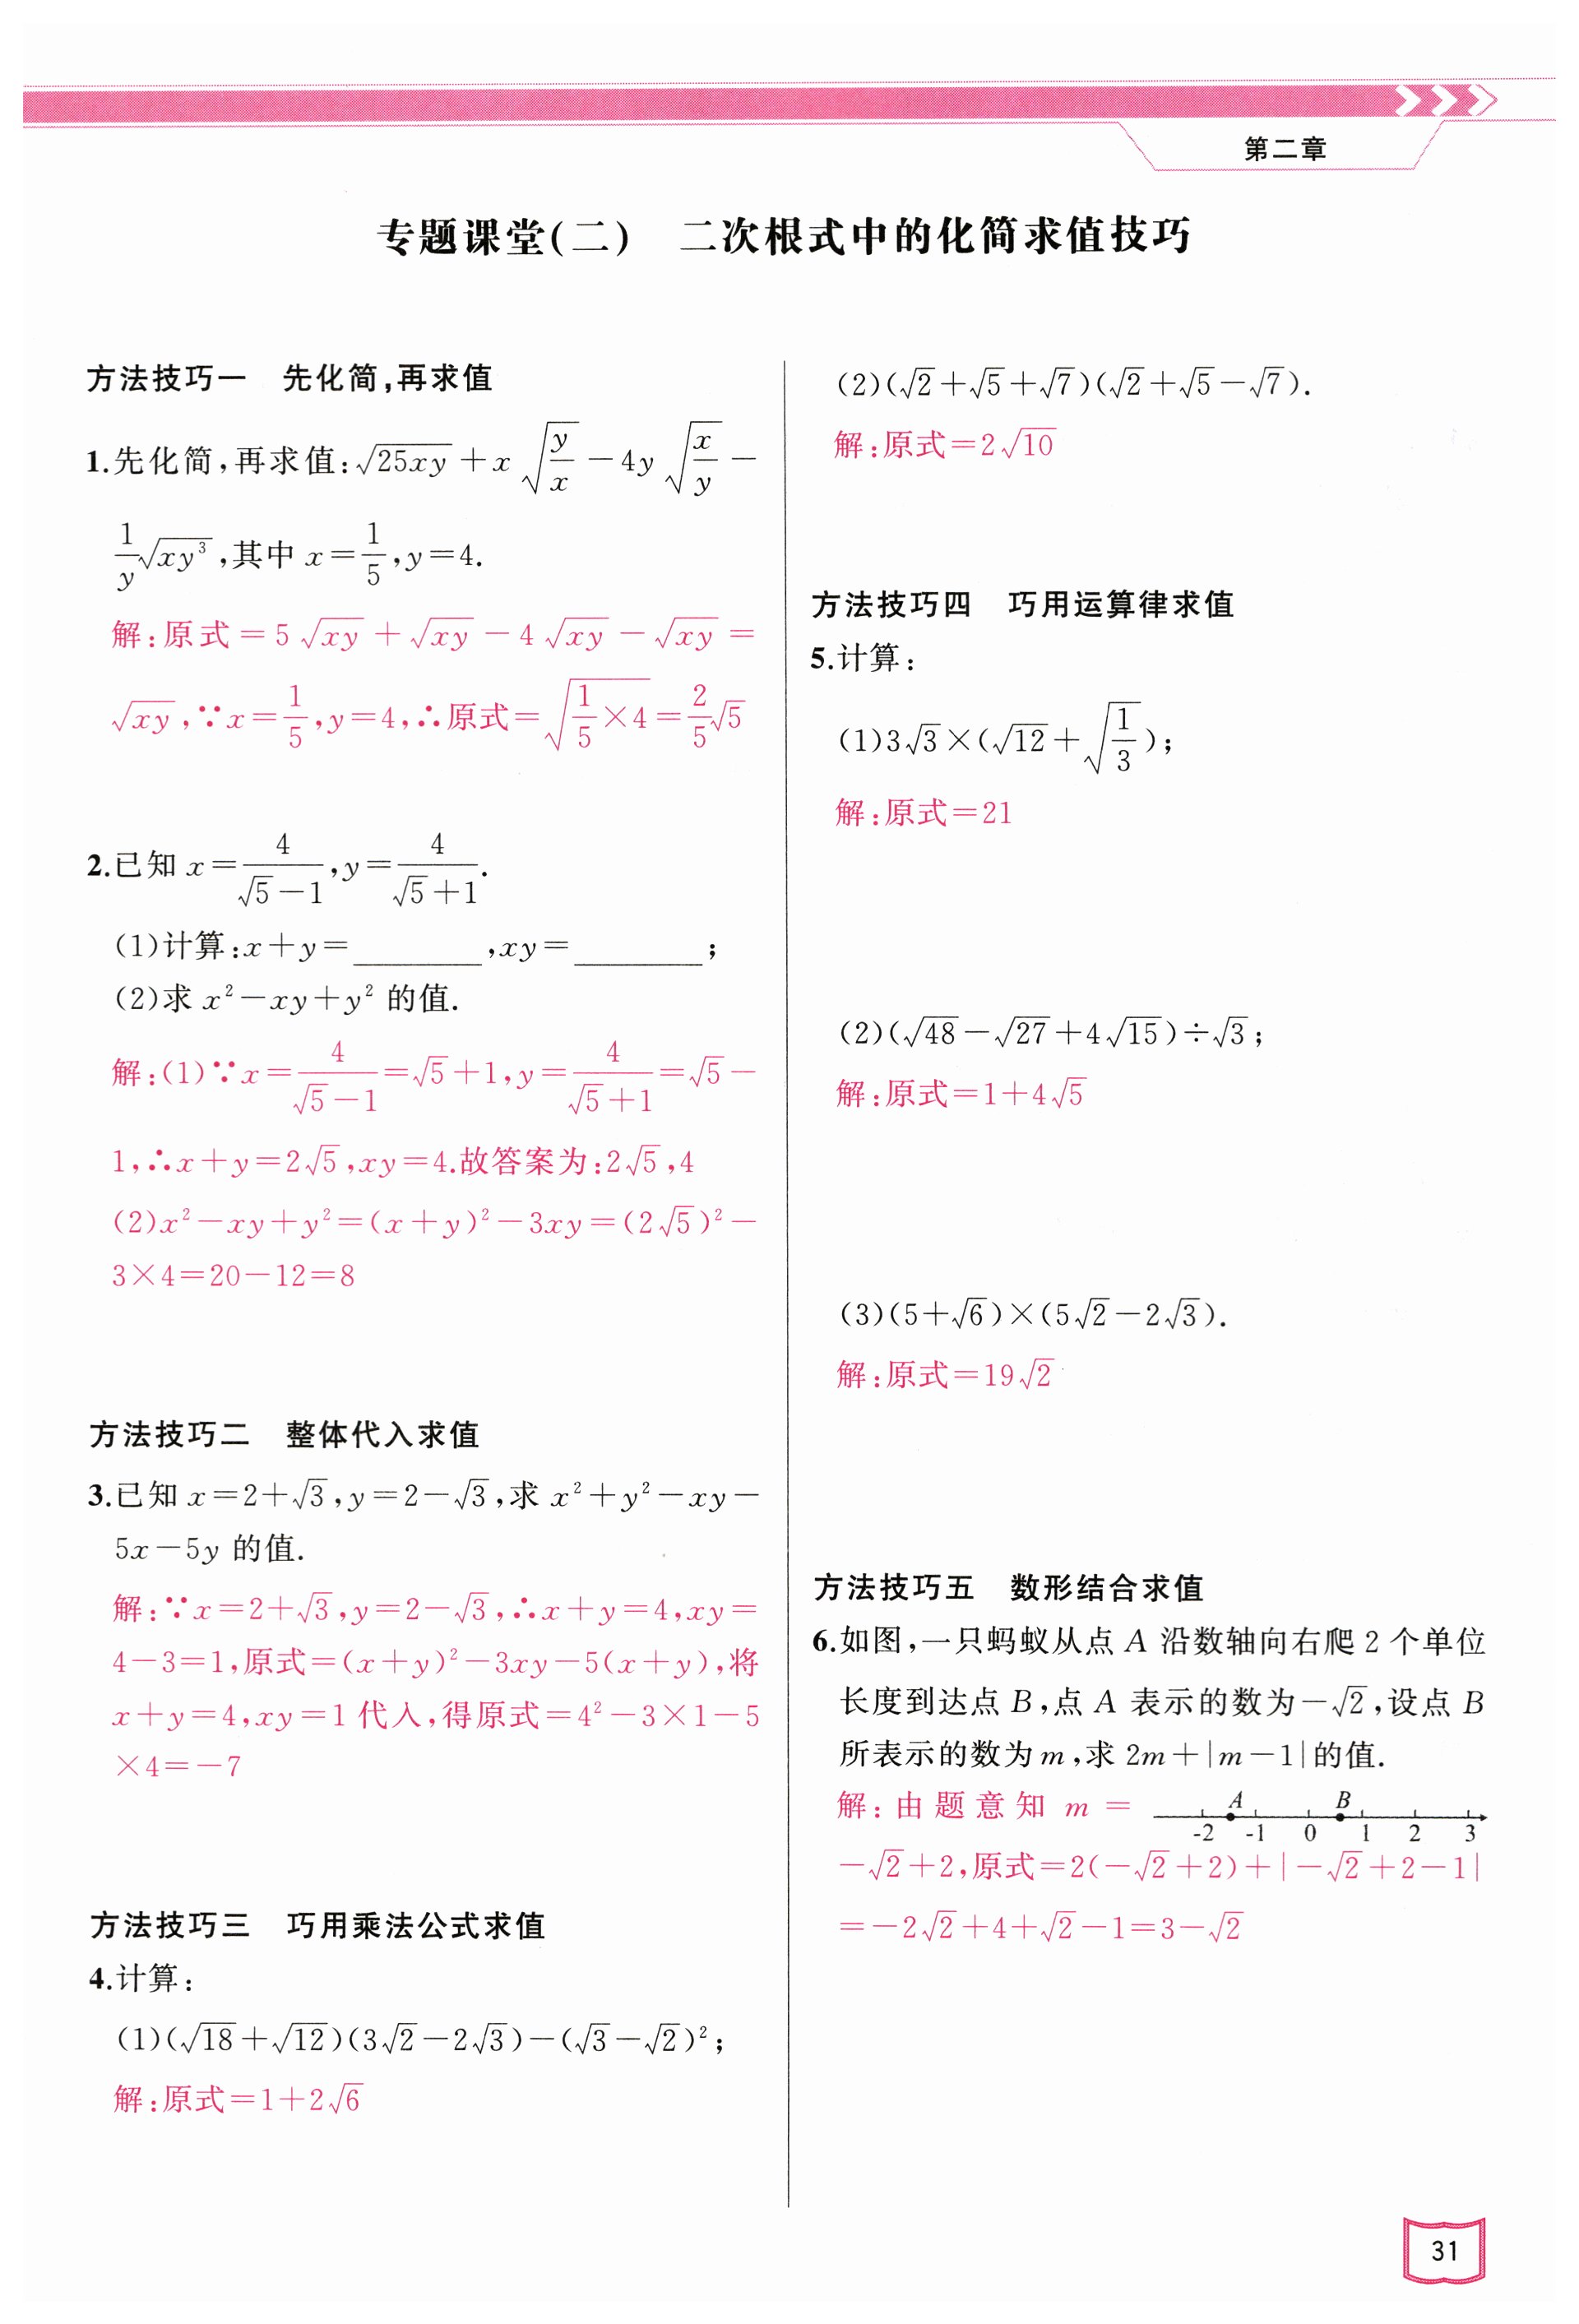 第二章
专题课堂(二) 二次根式中的化简求值技巧
方法技巧一 先化简,再求值
1.先化简,再求值:√(25xy)+x√(y/x)-4y√(x/y)-
(1/y)√(xy³),其中 x=1/5,y=4.
解:原式=5√(xy)+√(xy)-4√(xy)-√(xy)=
√(xy),∵x=1/5,y=4,∴原式=√(1/5×4)=(2/5)√5
2.已知 x=4/(√5-1),y=4/(√5+1).
(1)计算:x+y=________,xy=________;
(2)求 x²-xy+y² 的值.
解:(1)∵x=4/(√5-1)=√5+1,y=4/(√5+1)=√5-
1,∴x+y=2√5,xy=4.故答案为:2√5,4
(2)x²-xy+y²=(x+y)²-3xy=(2√5)²-
3×4=20-12=8
方法技巧二 整体代入求值
3.已知 x=2+√3,y=2-√3,求 x²+y²-xy-
5x-5y 的值.
解:∵x=2+√3,y=2-√3,∴x+y=4,xy=
4-3=1,原式=(x+y)²-3xy-5(x+y),将
x+y=4,xy=1 代入,得原式=4²-3×1-5
×4=-7
方法技巧三 巧用乘法公式求值
4.计算:
(1)(√18+√12)(3√2-2√3)-(√3-√2)²;
解:原式=1+2√6
(2)(√2+√5+√7)(√2+√5-√7).
解:原式=2√10
方法技巧四 巧用运算律求值
5.计算:
(1)3√3×(√12+√(1/3));
解:原式=21
(2)(√48-√27+4√15)÷√3;
解:原式=1+4√5
(3)(5+√6)×(5√2-2√3).
解:原式=19√2
方法技巧五 数形结合求值
6.如图,一只蚂蚁从点 A 沿数轴向右爬 2 个单位
长度到达点 B,点 A 表示的数为-√2,设点 B
所表示的数为 m,求 2m+|m-1|的值.
解:由题意知 m=
A B
-2 -1 0 1 2 3
-√2+2,原式=2(-√2+2)+|-√2+2-1|
=-2√2+4+√2-1=3-√2
31